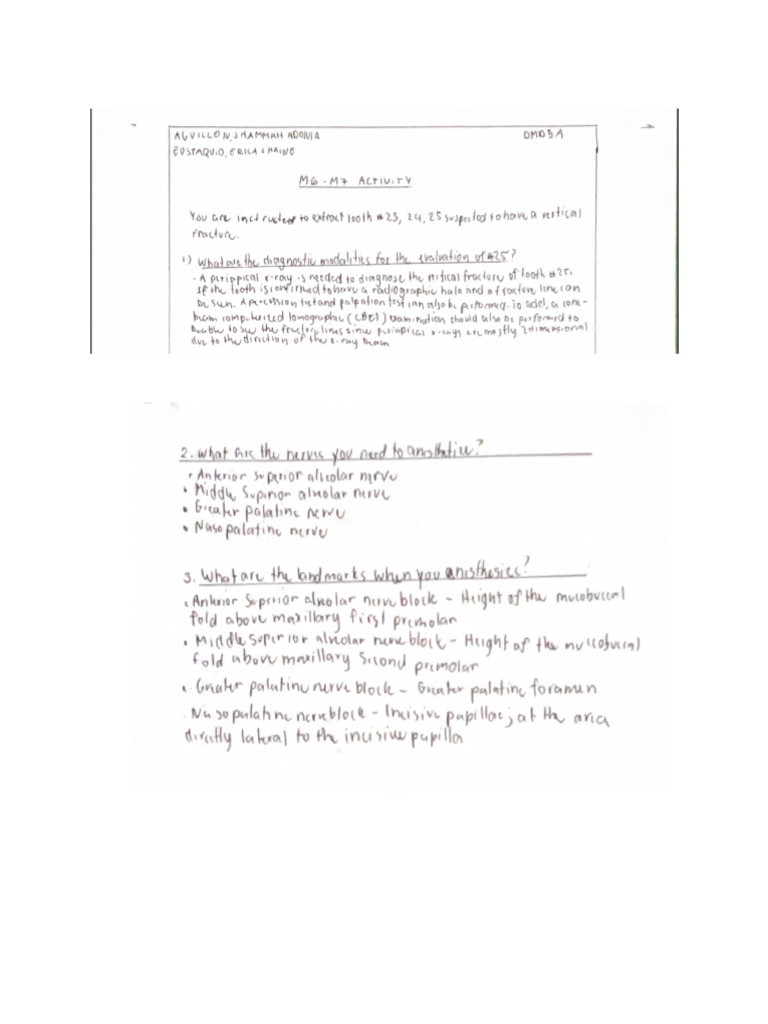 AGUILLON, SHAMMAH ADONIA DMD5A
EUSTAQUIO, ERICA SHAINE
M6 - M7 ACTIVITY
You are instructed to extract tooth #23, 24, 25 suspected to have a vertical
fracture.
1) What are the diagnostic modalities for the evaluation of #25?
- A periapical x-ray is needed to diagnose the vertical fracture of tooth #25.
If the tooth is confirmed to have a radiographic halo and a fracture line can
be seen. A percussion test and palpation test can also be performed. To add, a cone-
beam computerized tomographic (CBCT) examination should also be performed to
be able to see the fracture lines since periapical x-rays are mostly 2 dimensional
due to the direction of the x-ray beam
2. What are the nerves you need to anesthetize?
• Anterior superior alveolar nerve
• Middle Superior alveolar nerve
• Greater palatine nerve
• Nasopalatine nerve
3. What are the landmarks when you anesthesize?
• Anterior Superior alveolar nerve block - Height of the mucobuccal
fold above maxillary first premolar
• Middle superior alveolar nerve block - Height of the muccobuccal
fold above maxillary second premolar
• Greater palatine nerve block - Greater palatine foramen
. Nasopalatine nerve block - Incisive papillae; at the area
directly lateral to the incisive papilla